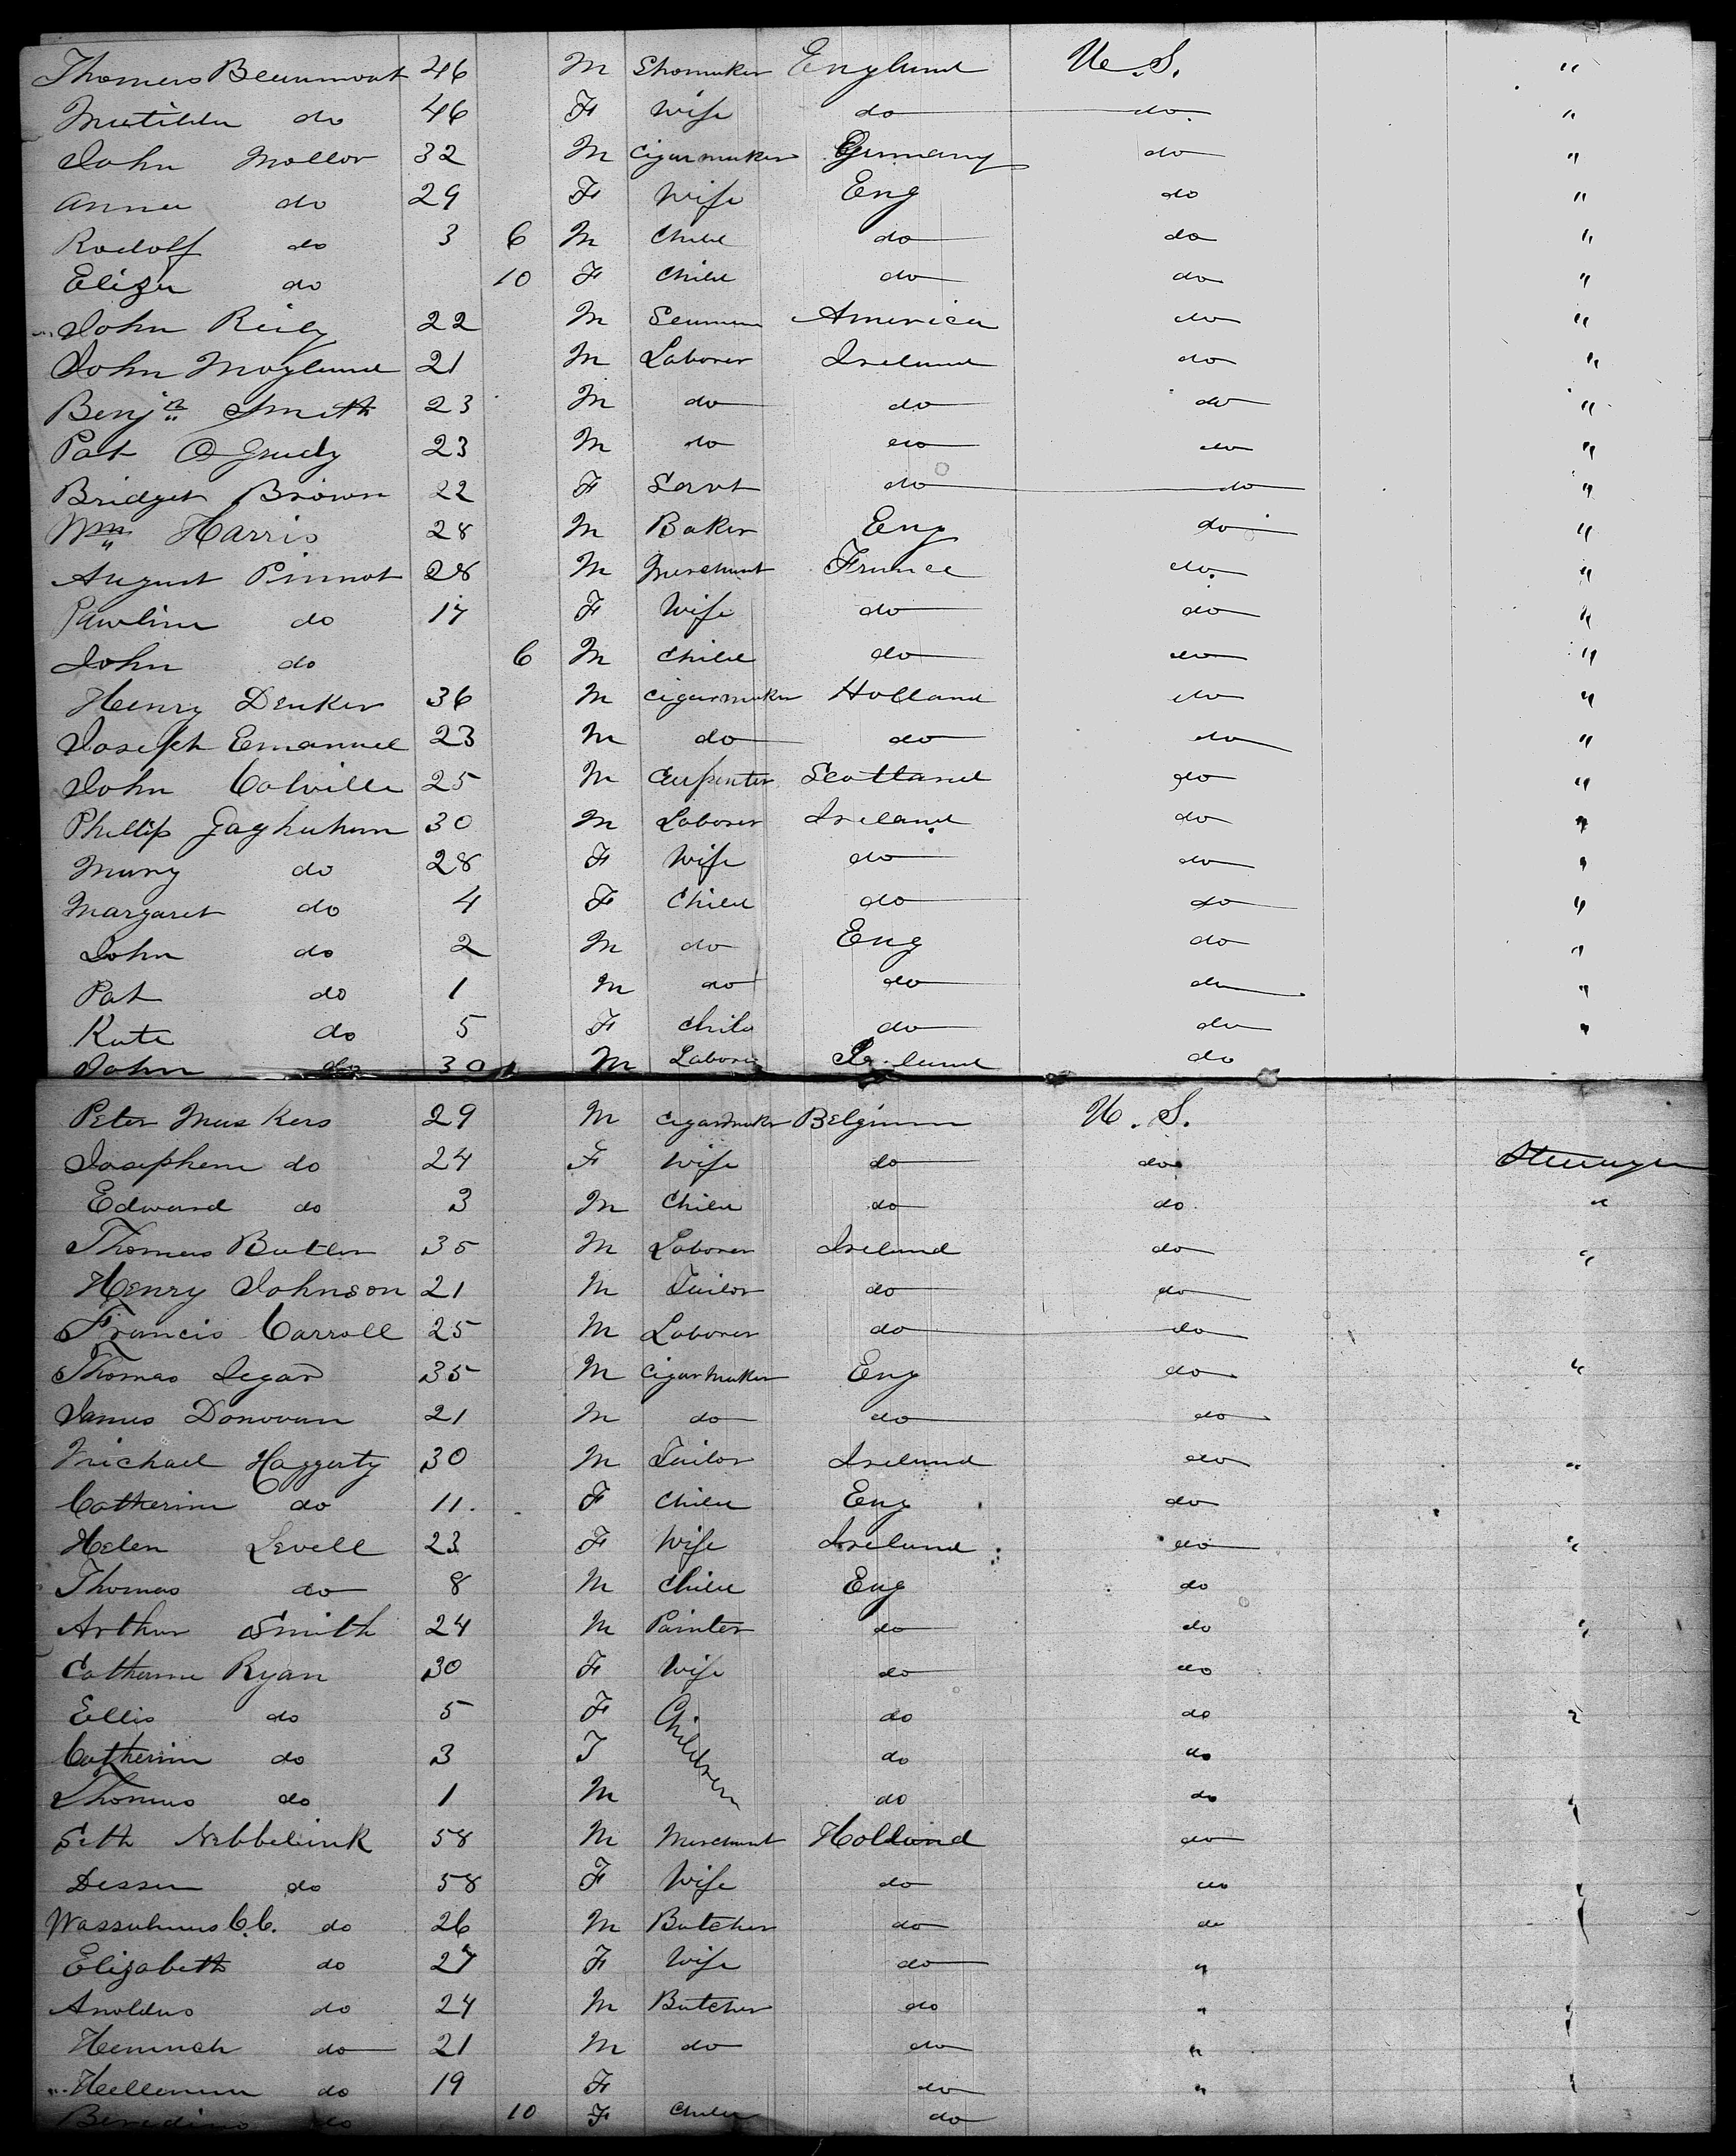 Thomas Beaumont 46 M Shomaker England U.S. "
Matilda do 46 F Wife do do "
John Mollor 32 M Cigarmaker Germany do "
Anna do 29 F Wife Eng do "
Rodolf do 3 6 M Child do do "
Eliza do 10 F Child do do "
John Reily 22 M Seaman America do "
John Moyland 21 M Laborer Ireland do "
Benjn Smith 23 M do do do "
Pat O Grady 23 M do do do "
Bridget Brown 22 F Servt do do "
Wm Harris 28 M Baker Eng do "
August Pinnot 28 M Merchant France do "
Pawline do 17 F Wife do do "
John do 6 M Child do do "
Henry Denker 36 M Cigarmaker Holland do "
Joseph Emanuel 23 M do do do "
John Colville 25 M Carpenter Scotland do "
Phillip Gaghahan 30 M Laborer Ireland do "
Mary do 28 F Wife do do "
Margaret do 4 F Child do do "
John do 2 M do Eng do "
Pat do 1 M do do do "
Kate do 5 F Child do do "
John do 30 M Laborer Ireland do
Peter Muskers 29 M Cigarmaker Belgium U.S.
Josephene do 24 F Wife do do Steerage
Edward do 3 M Child do do "
Thomas Butler 35 M Laborer Ireland do "
Henry Johnson 21 M Tailor do do
Francis Carroll 25 M Laborer do do
Thomas Segar 35 M Cigarmaker Eng do "
James Donovan 21 M do do do
Michael Haggerty 30 M Tailor Ireland do "
Catherine do 11 F Child Eng do
Helen Levell 23 F Wife Ireland do "
Thomas do 8 M Child Eng do
Arthur Smith 24 M Painter do do "
Catherine Ryan 30 F Wife do do
Ellis do 5 F Children do do "
Catherine do 3 F do do
Thomas do 1 M do do "
Seth Nebbelink 58 M Merchant Holland do
do 58 F Wife do do "
C.C. do 26 M Butcher do do
Elizabeth do 27 F Wife do "
Anoldus do 24 M Butcher do " "
Heinrich do 21 M do do "
do 19 F do " "
do 10 F Child do